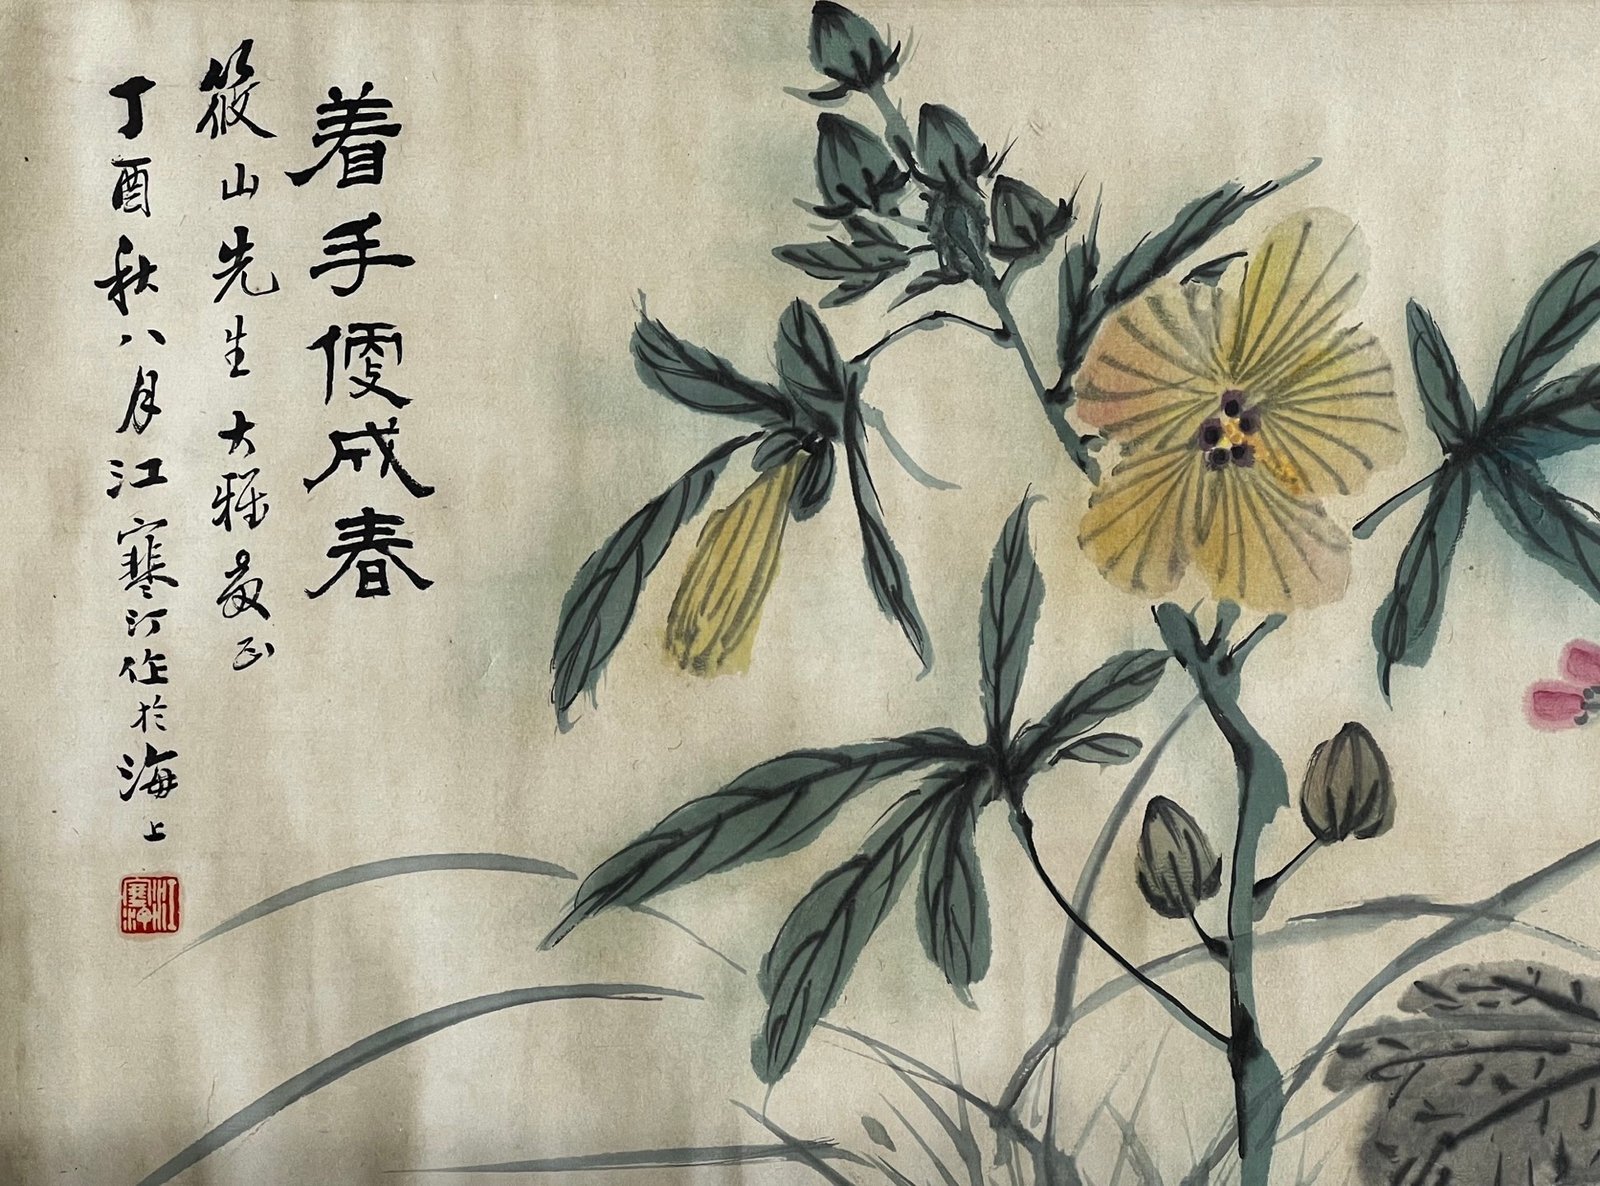 着手便成春
筱山先生大雅教正
丁酉秋八月江寒汀作於海上
江寒汀